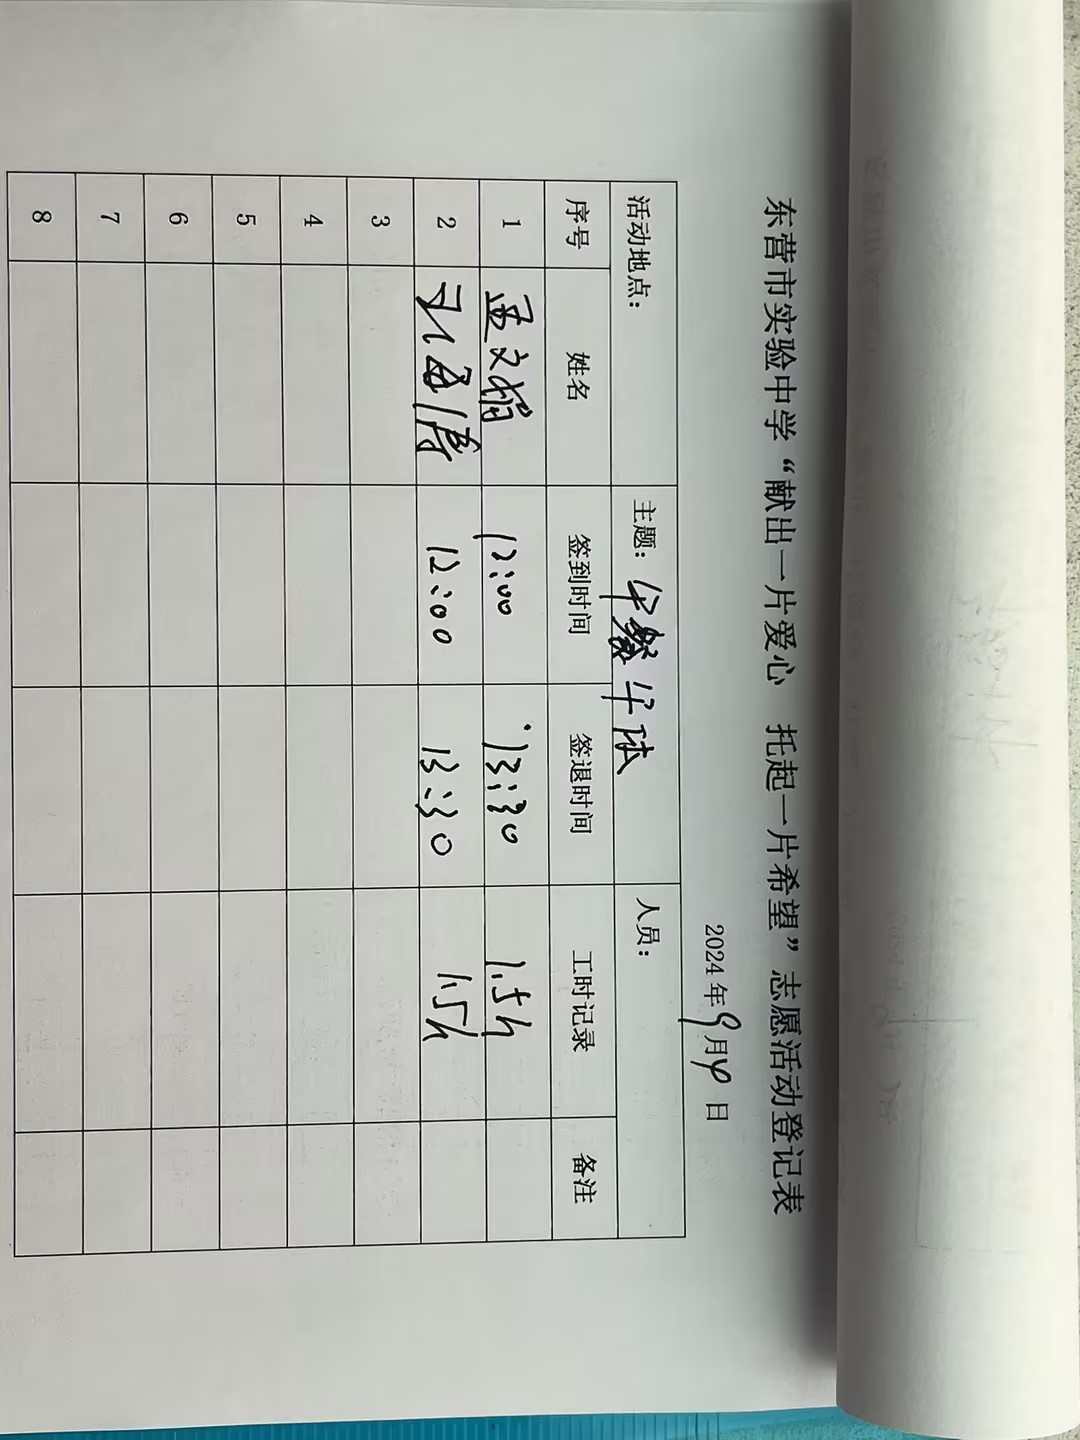 东营市实验中学“献出一片爱心 托起一片希望”志愿活动登记表
2024年9月4日
活动地点： 主题：午餐午休 人员：
序号 姓名 签到时间 签退时间 工时记录 备注
1 孟文娟 12:00 13:30 1.5h
2 孔海涛 12:00 13:30 1.5h
3
4
5
6
7
8